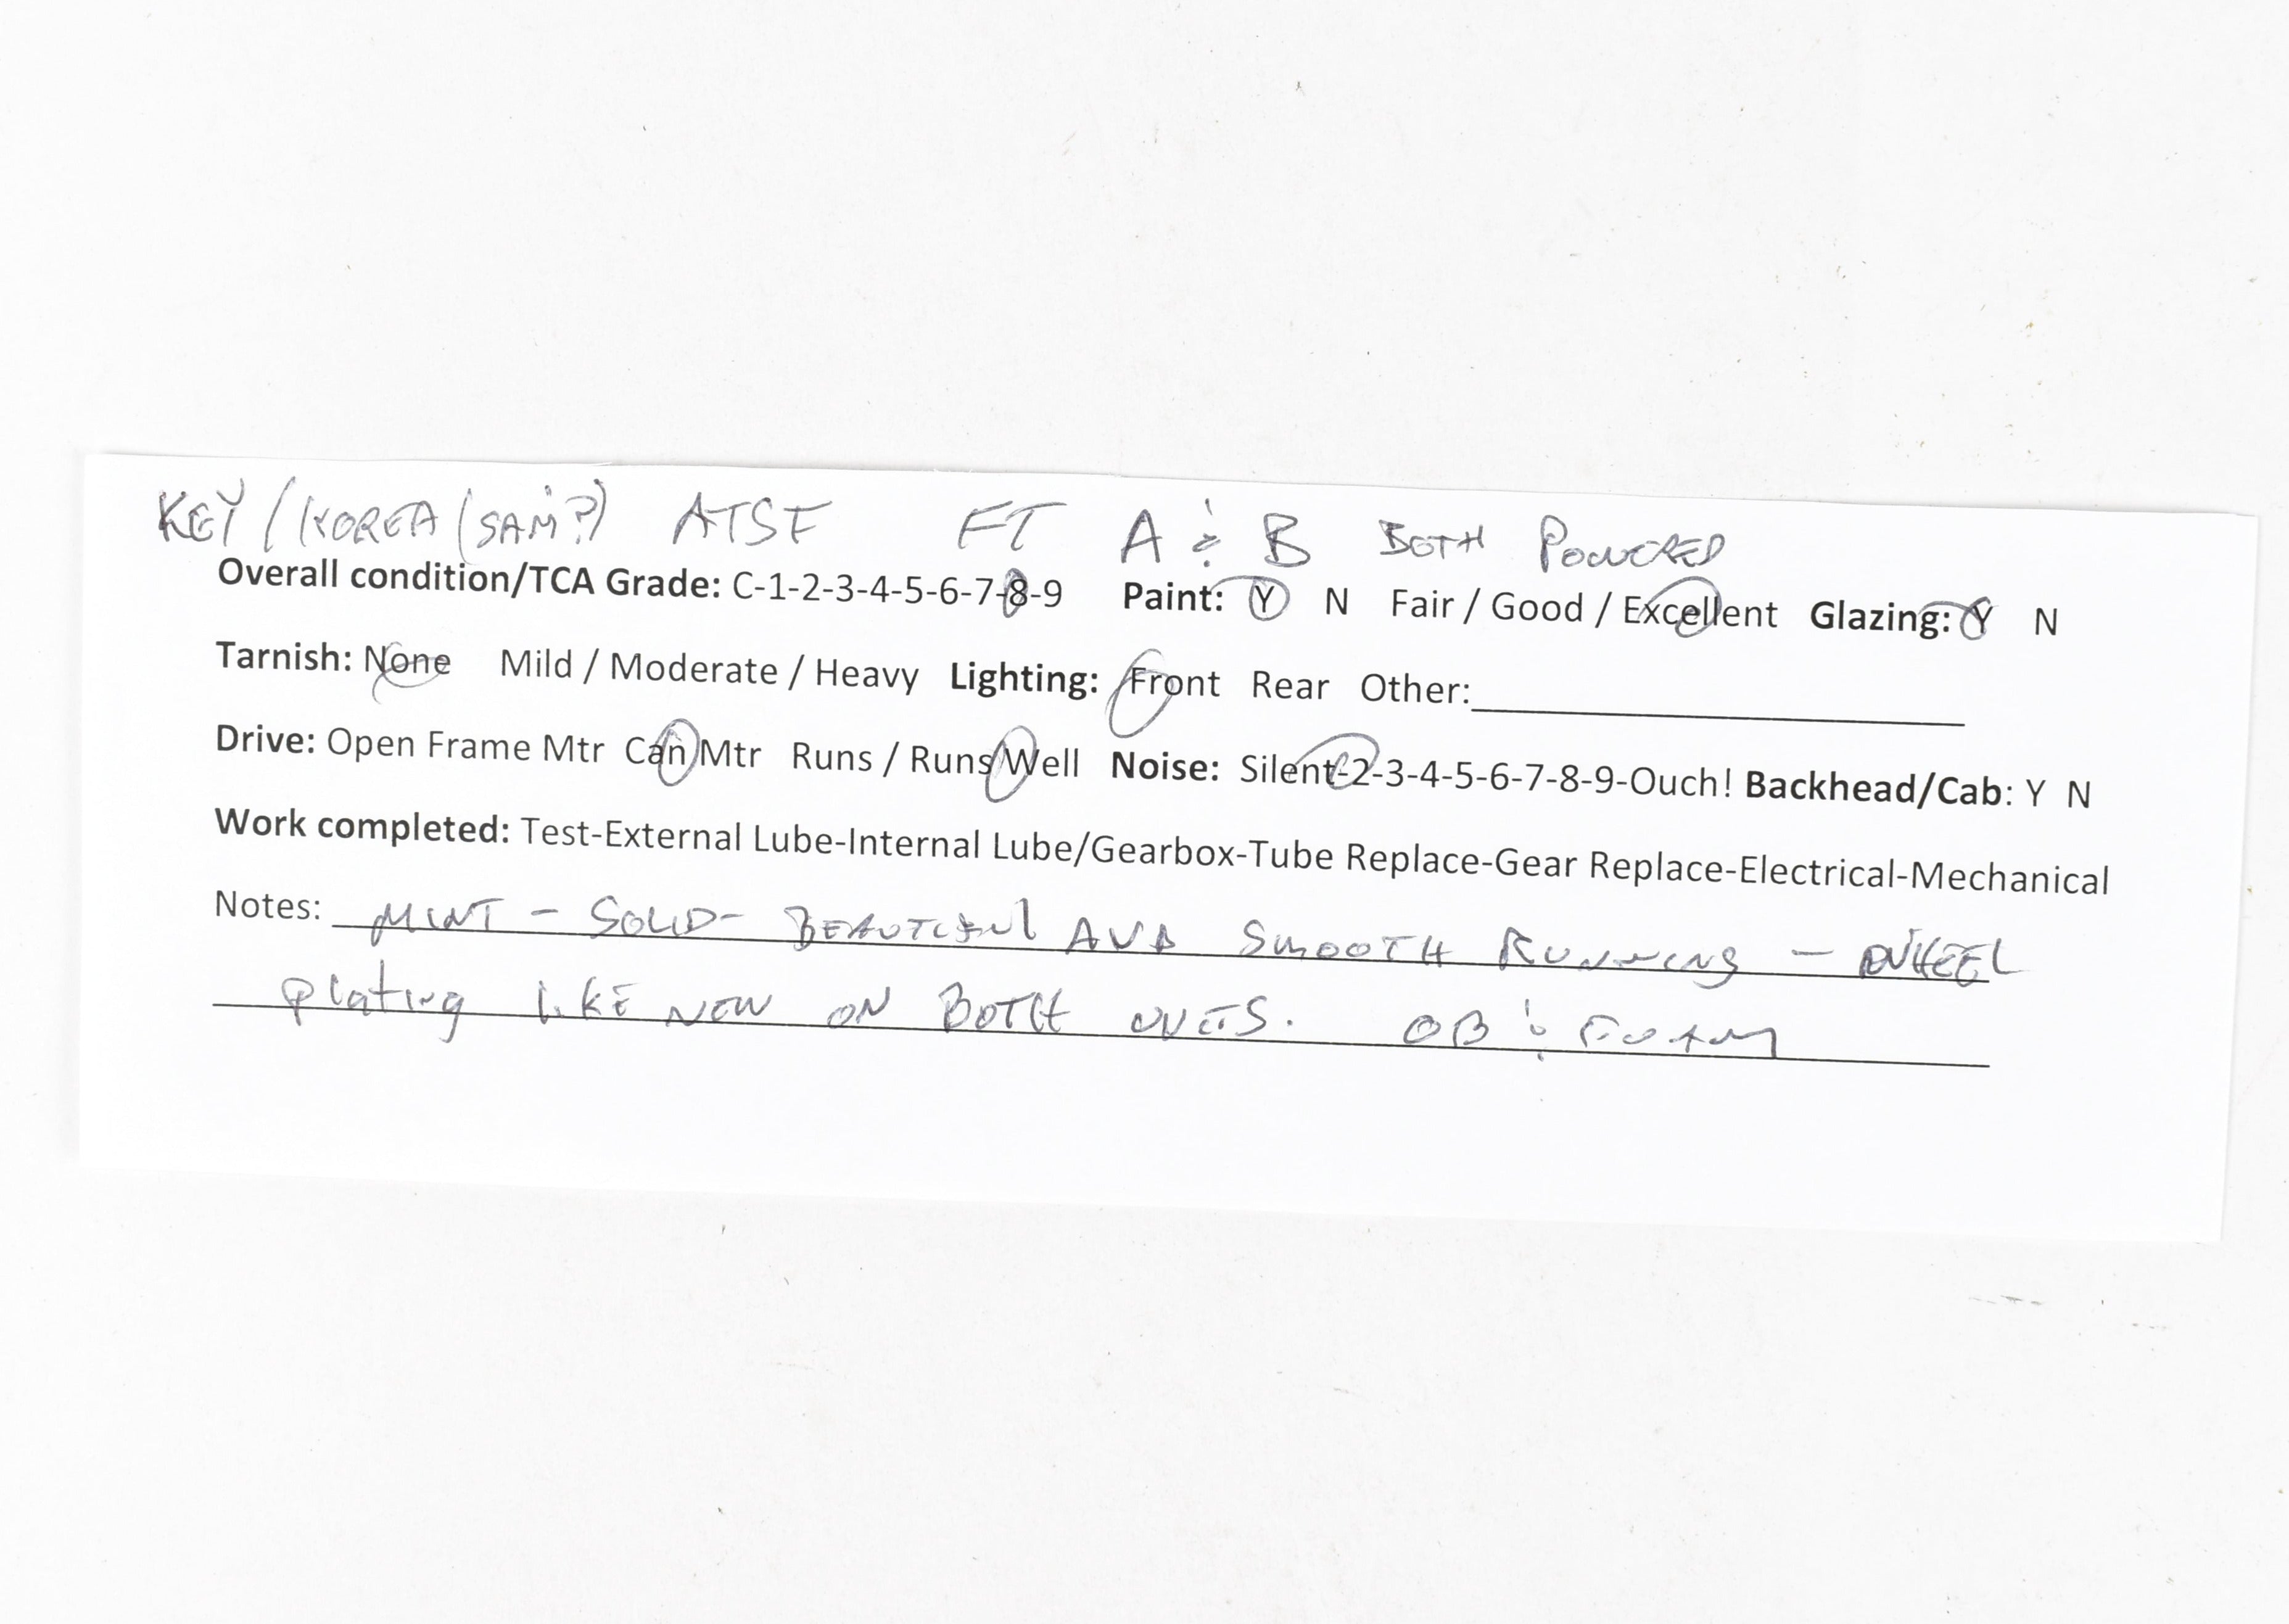 KEY / KOREA (SAM?) ATSF FT A & B BOTH POWERED
Overall condition/TCA Grade: C-1-2-3-4-5-6-7-8-9 Paint: Y N Fair / Good / Excellent Glazing: Y N
Tarnish: None Mild / Moderate / Heavy Lighting: Front Rear Other:
Drive: Open Frame Mtr Can Mtr Runs / Runs Well Noise: Silent-2-3-4-5-6-7-8-9-Ouch! Backhead/Cab: Y N
Work completed: Test-External Lube-Internal Lube/Gearbox-Tube Replace-Gear Replace-Electrical-Mechanical
Notes: MINT - SOLID - BEAUTIFUL AND SMOOTH RUNNING - WHEEL
Plating LIKE NEW ON BOTH UNITS. OB & FOAM